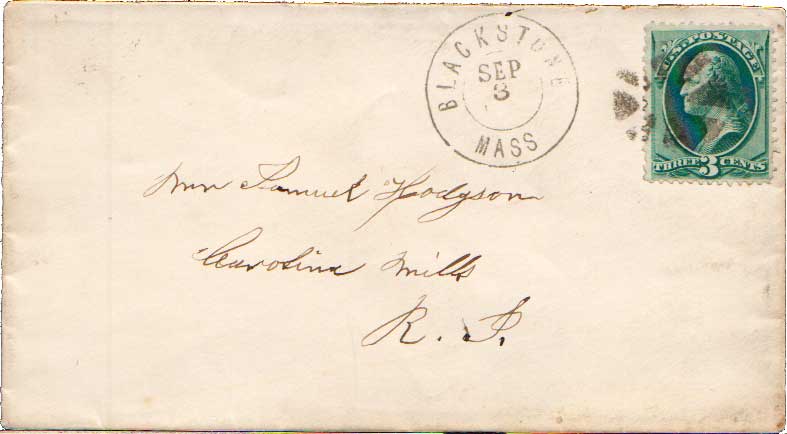 BLACKSTONE
SEP
3
MASS
U.S. POSTAGE
THREE 3 CENTS
Samuel Hodgson
Carolina Mills
R. I.